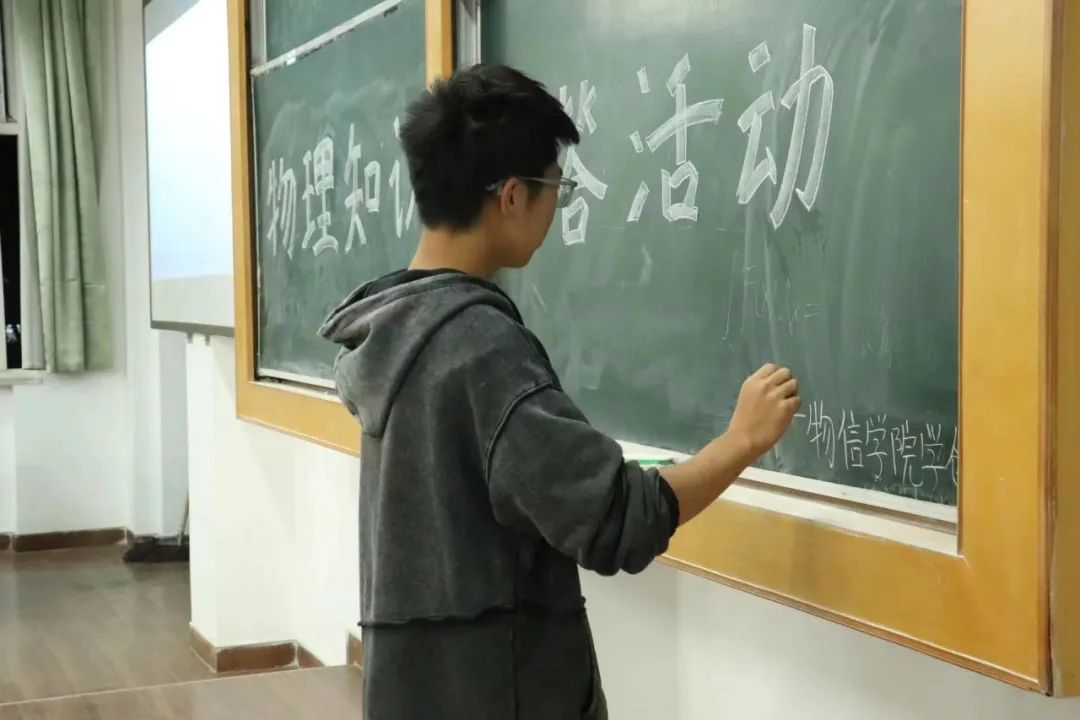 物理知识答活动
物信学院学